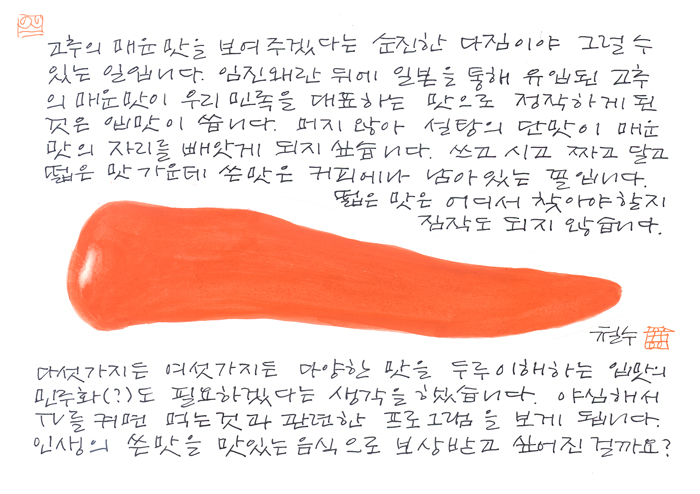 고추의 매운 맛을 보여주겠다는 순진한 다짐이야 그럴 수
있는 일입니다. 임진왜란 뒤에 일본을 통해 유입된 고추
의 매운맛이 우리 민족을 대표하는 맛으로 정착하게 된
것은 입맛이 씁니다. 머지 않아 설탕의 단맛이 매운
맛의 자리를 빼앗게 되지 싶습니다. 쓰고 시고 짜고 달고
떫은 맛 가운데 쓴맛은 커피에나 남아있는 필입니다.
떫은 맛은 어디서 찾아야할지
짐작도 되지 않습니다.
철수
다섯가지든 여섯가지든 다양한 맛을 두루 이해하는 입맛의
민주화(?)도 필요하겠다는 생각을 했습니다. 야심해서
TV를 켜면 먹는것과 관련한 프로그램을 보게 됩니다.
인생의 쓴맛을 맛있는 음식으로 보상받고 싶어진 걸까요?